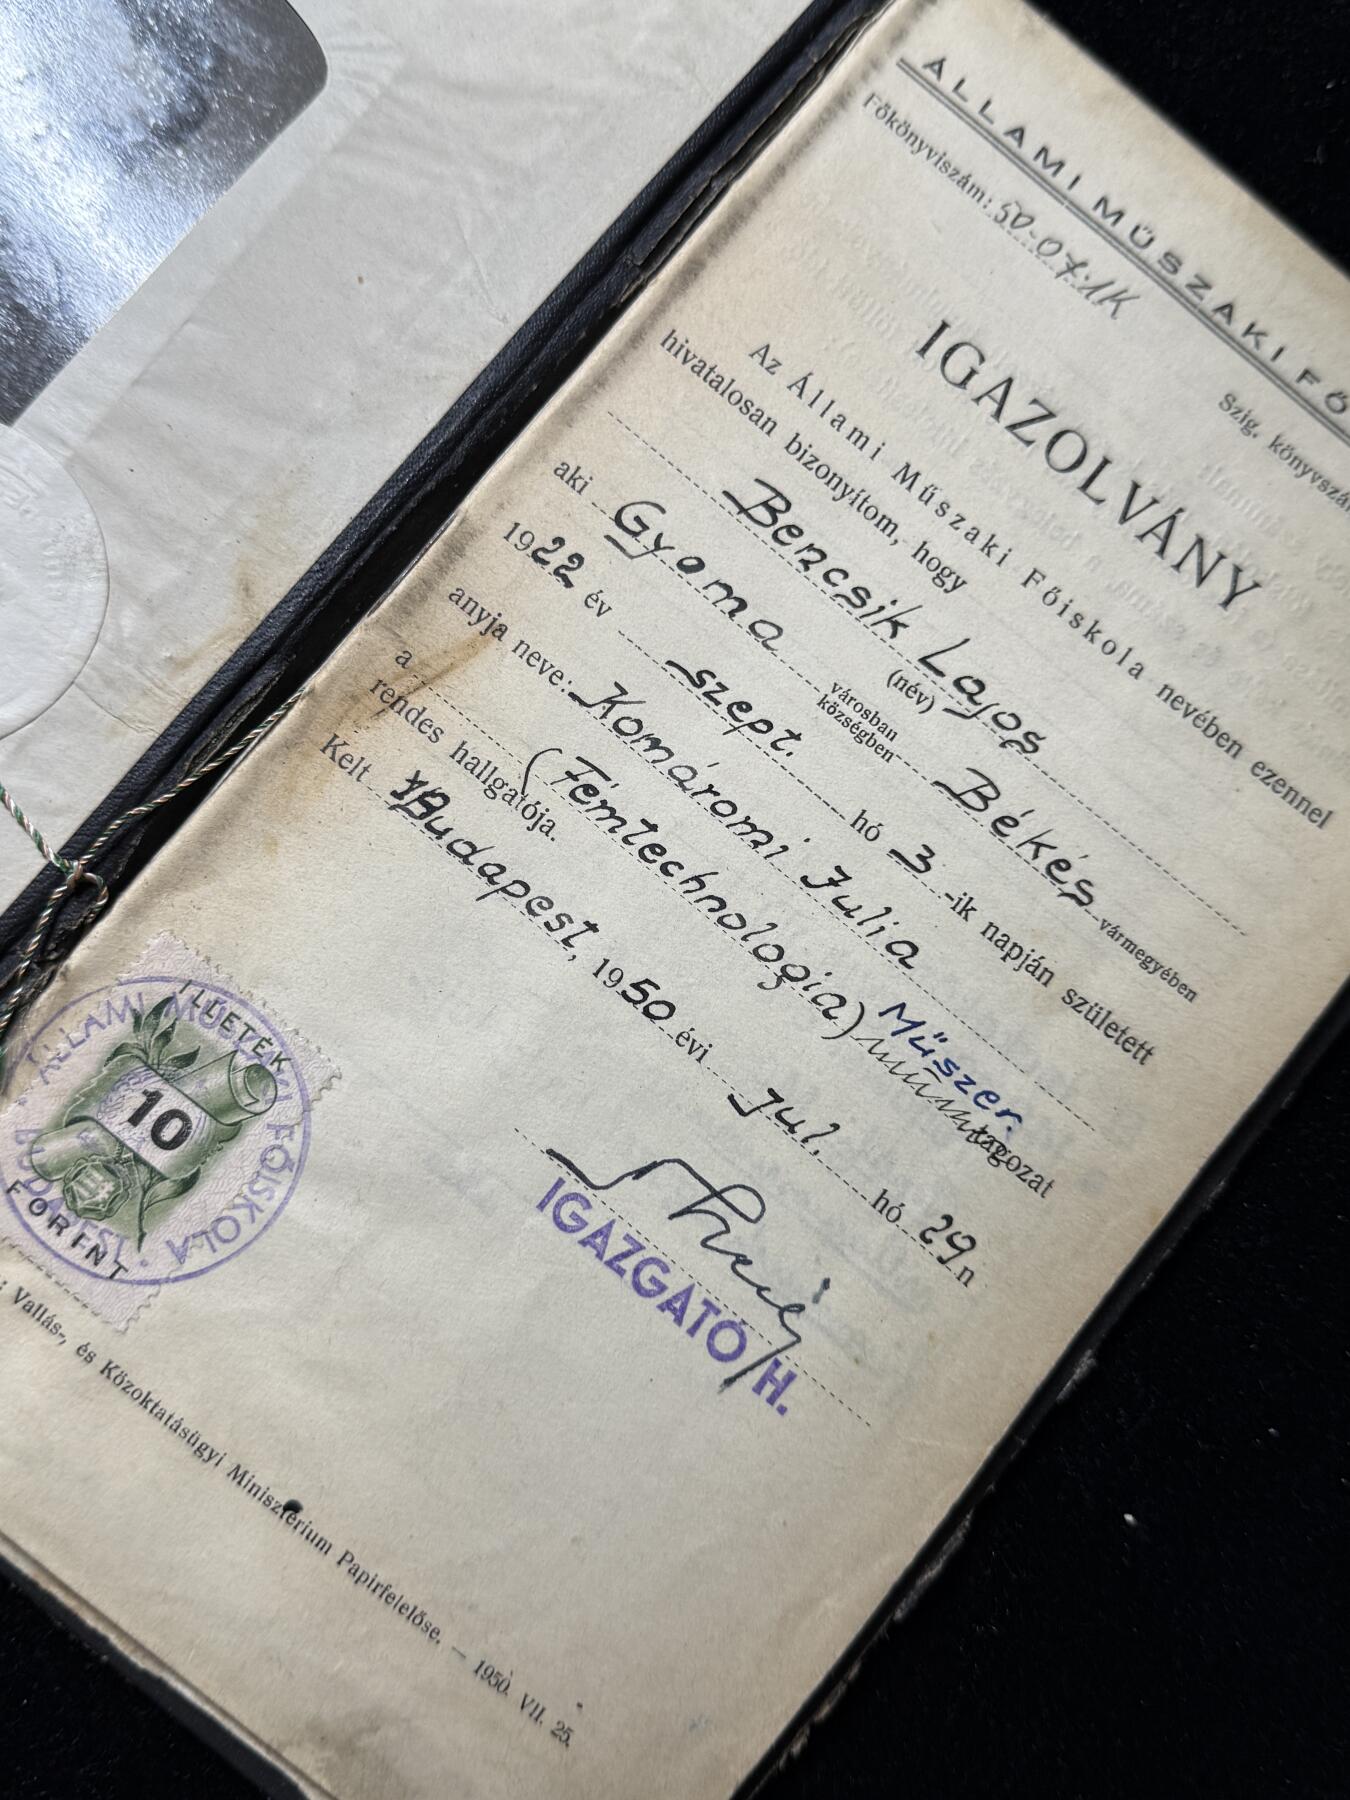 ÁLLAMI MŰSZAKI FŐ
Főkönyviszám: 50-07.1K
Szig. könyvszám
IGAZOLVÁNY
Az Állami Műszaki Főiskola nevében ezennel
hivatalosan bizonyítom, hogy
Bencsik Lajos
(név)
aki Gyoma városban községben Békés vármegyében
1922 év szept. hó 3 -ik napján született
anyja neve: Komáromi Julia
a (Fémtechnologia) Műszer. tagozat
rendes hallgatója.
Kelt Budapest, 1950 évi Jul. hó 29 n
IGAZGATÓ H.
ILLETÉK
10
FORINT
ÁLLAMI MŰSZAKI FŐISKOLA
BUDAPEST
: Vallás-, és Közoktatásügyi Minisztérium Papirfelelőse. — 1950. VII. 25.